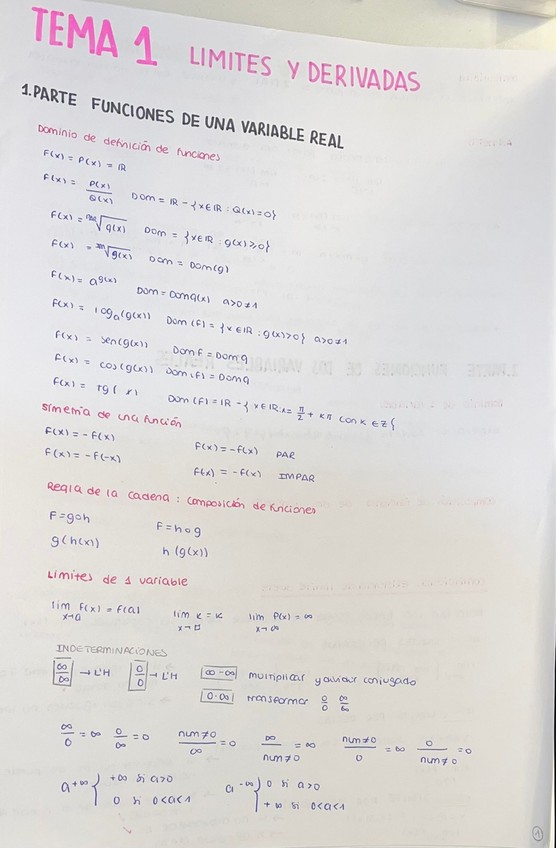 TEMA 1 LIMITES Y DERIVADAS
1.PARTE FUNCIONES DE UNA VARIABLE REAL
Dominio de definición de funciones
F(x) = P(x) = IR
F(x) = P(x)/Q(x) Dom = IR - {x∈IR : Q(x)=0}
F(x) = √g(x) Dom = {x∈IR : g(x)≥0}
F(x) = √g(x) Dom = Dom(g)
F(x) = a^g(x) Dom = Dom g(x) a>0≠1
F(x) = log_a(g(x)) Dom (F) = {x∈IR : g(x)>0} a>0≠1
F(x) = sen(g(x)) Dom F = Dom g
F(x) = cos(g(x)) Dom (F) = Dom g
F(x) = tg( x) Dom (F) = IR - { x∈IR: x= π/2 + kπ con k ∈ Z {
Simetría de una función
F(x) = -F(x) F(x) = -F(x) PAR
F(x) = -F(-x) F(x) = -F(x) IMPAR
Regla de la cadena : composición de funciones
F = goh F = h o g
g(h(x)) h (g(x))
Límites de 1 variable
lim F(x) = F(a) lim K = K lim P(x) = ∞
x→a x→□ x→∞
INDETERMINACIONES
∞/∞ → L'H 0/0 → L'H ∞-∞ multiplicar y dividir conjugado
0·∞ transformar 0/0 ∞/∞
∞/0 = ∞ 0/∞ = 0 num≠0/∞ = 0 ∞/num≠0 = ∞ num≠0/0 = ∞ 0/num≠0 = 0
a^+∞ { +∞ si a>0 a^-∞ } 0 si a>0
0 si 0<a<1 +∞ si 0<a<1
1